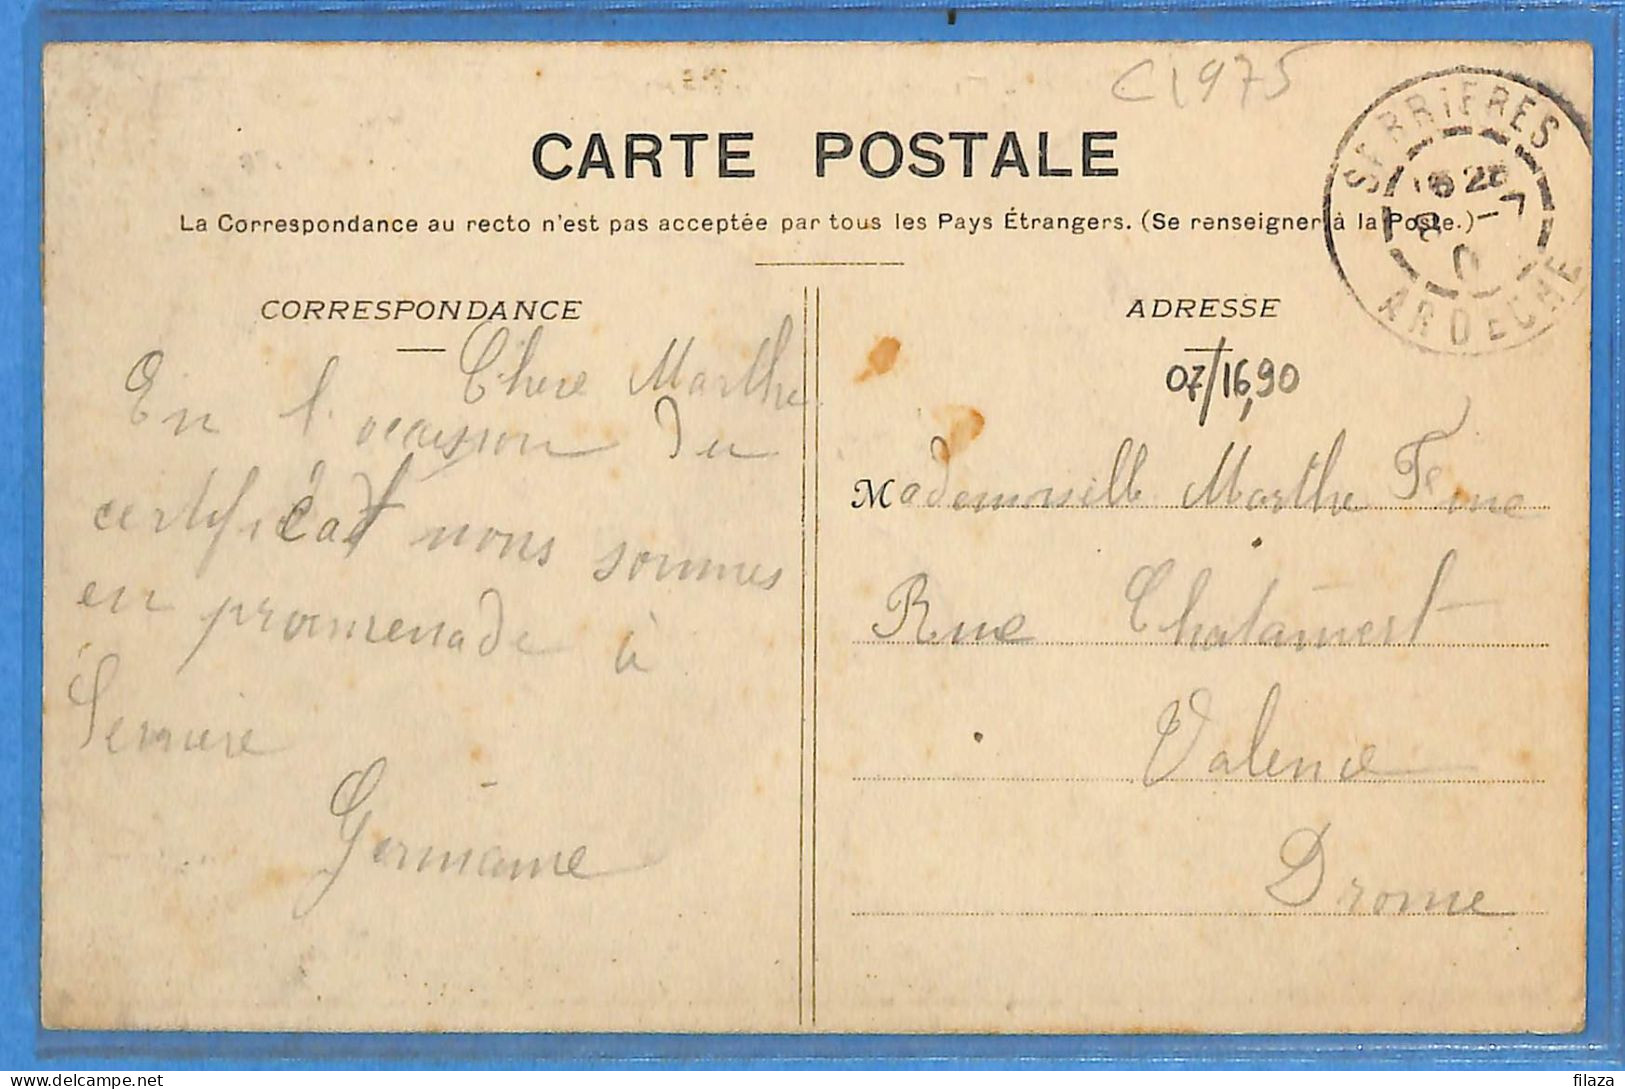 C1975
CARTE POSTALE
La Correspondance au recto n'est pas acceptée par tous les Pays Étrangers. (Se renseigner à la Poste.)
SERRIERES
ARDECHE
CORRESPONDANCE
Chere Marthe
En l'occasion du
certificat nous sommes
en promenade à
Serriere
Germaine
ADRESSE
07/16,90
Mademoiselle Marthe
Rue
Valence
Drome
delcampe.net
filaza